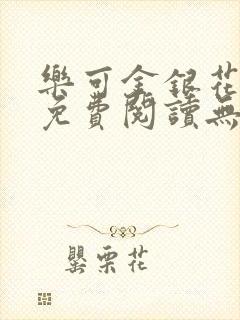 樂可金銀花
免費閱讀無
罌粟花